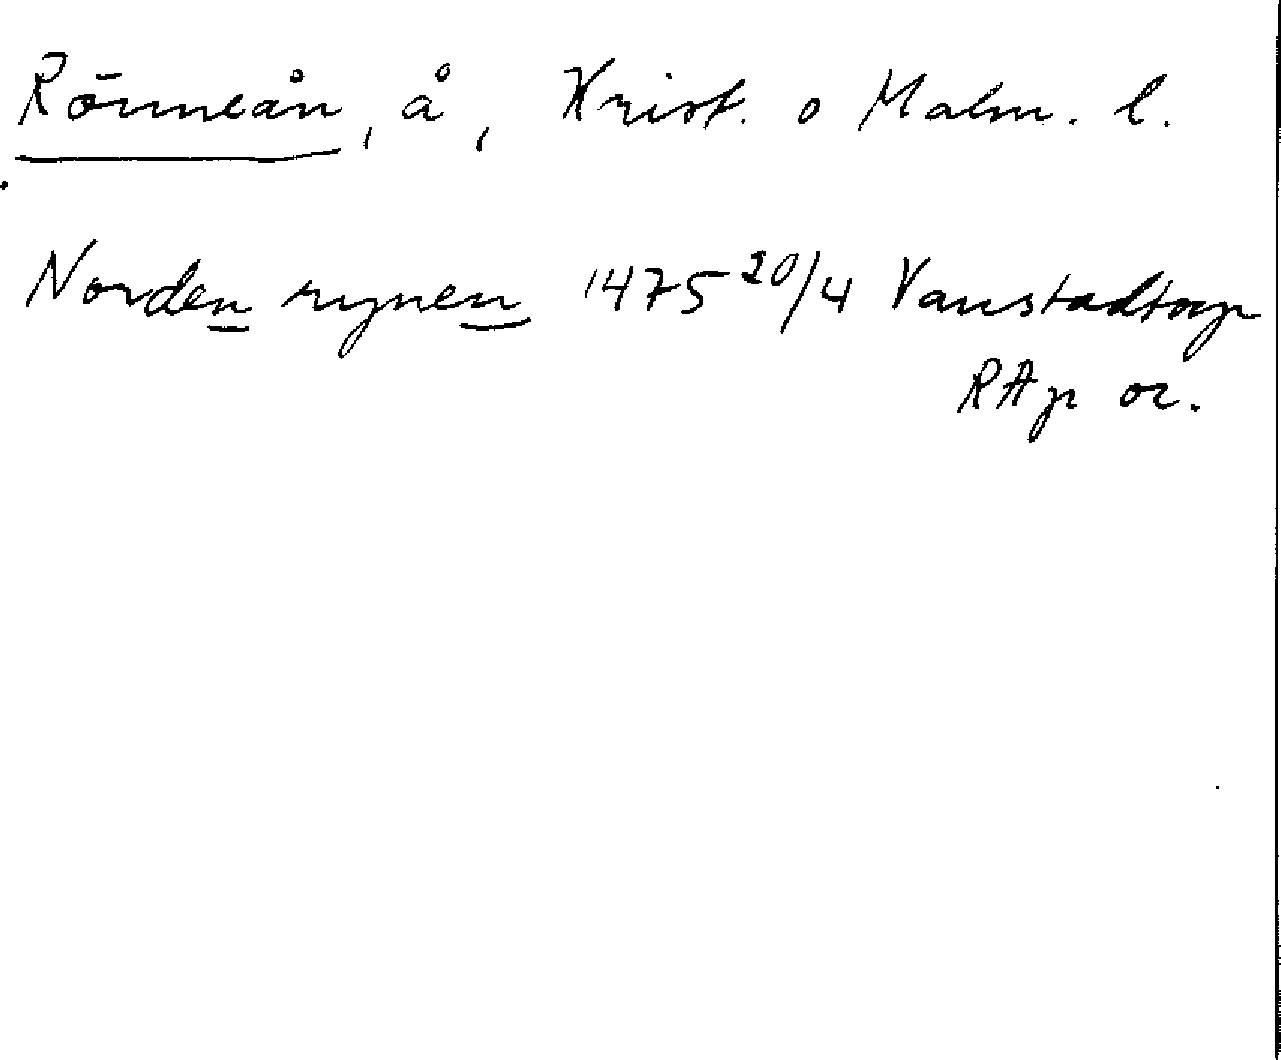 Rönneån, å, Krist. o Malm. l.
Norden rynen 1475 20/4 Vanstadtorp
RAp or.